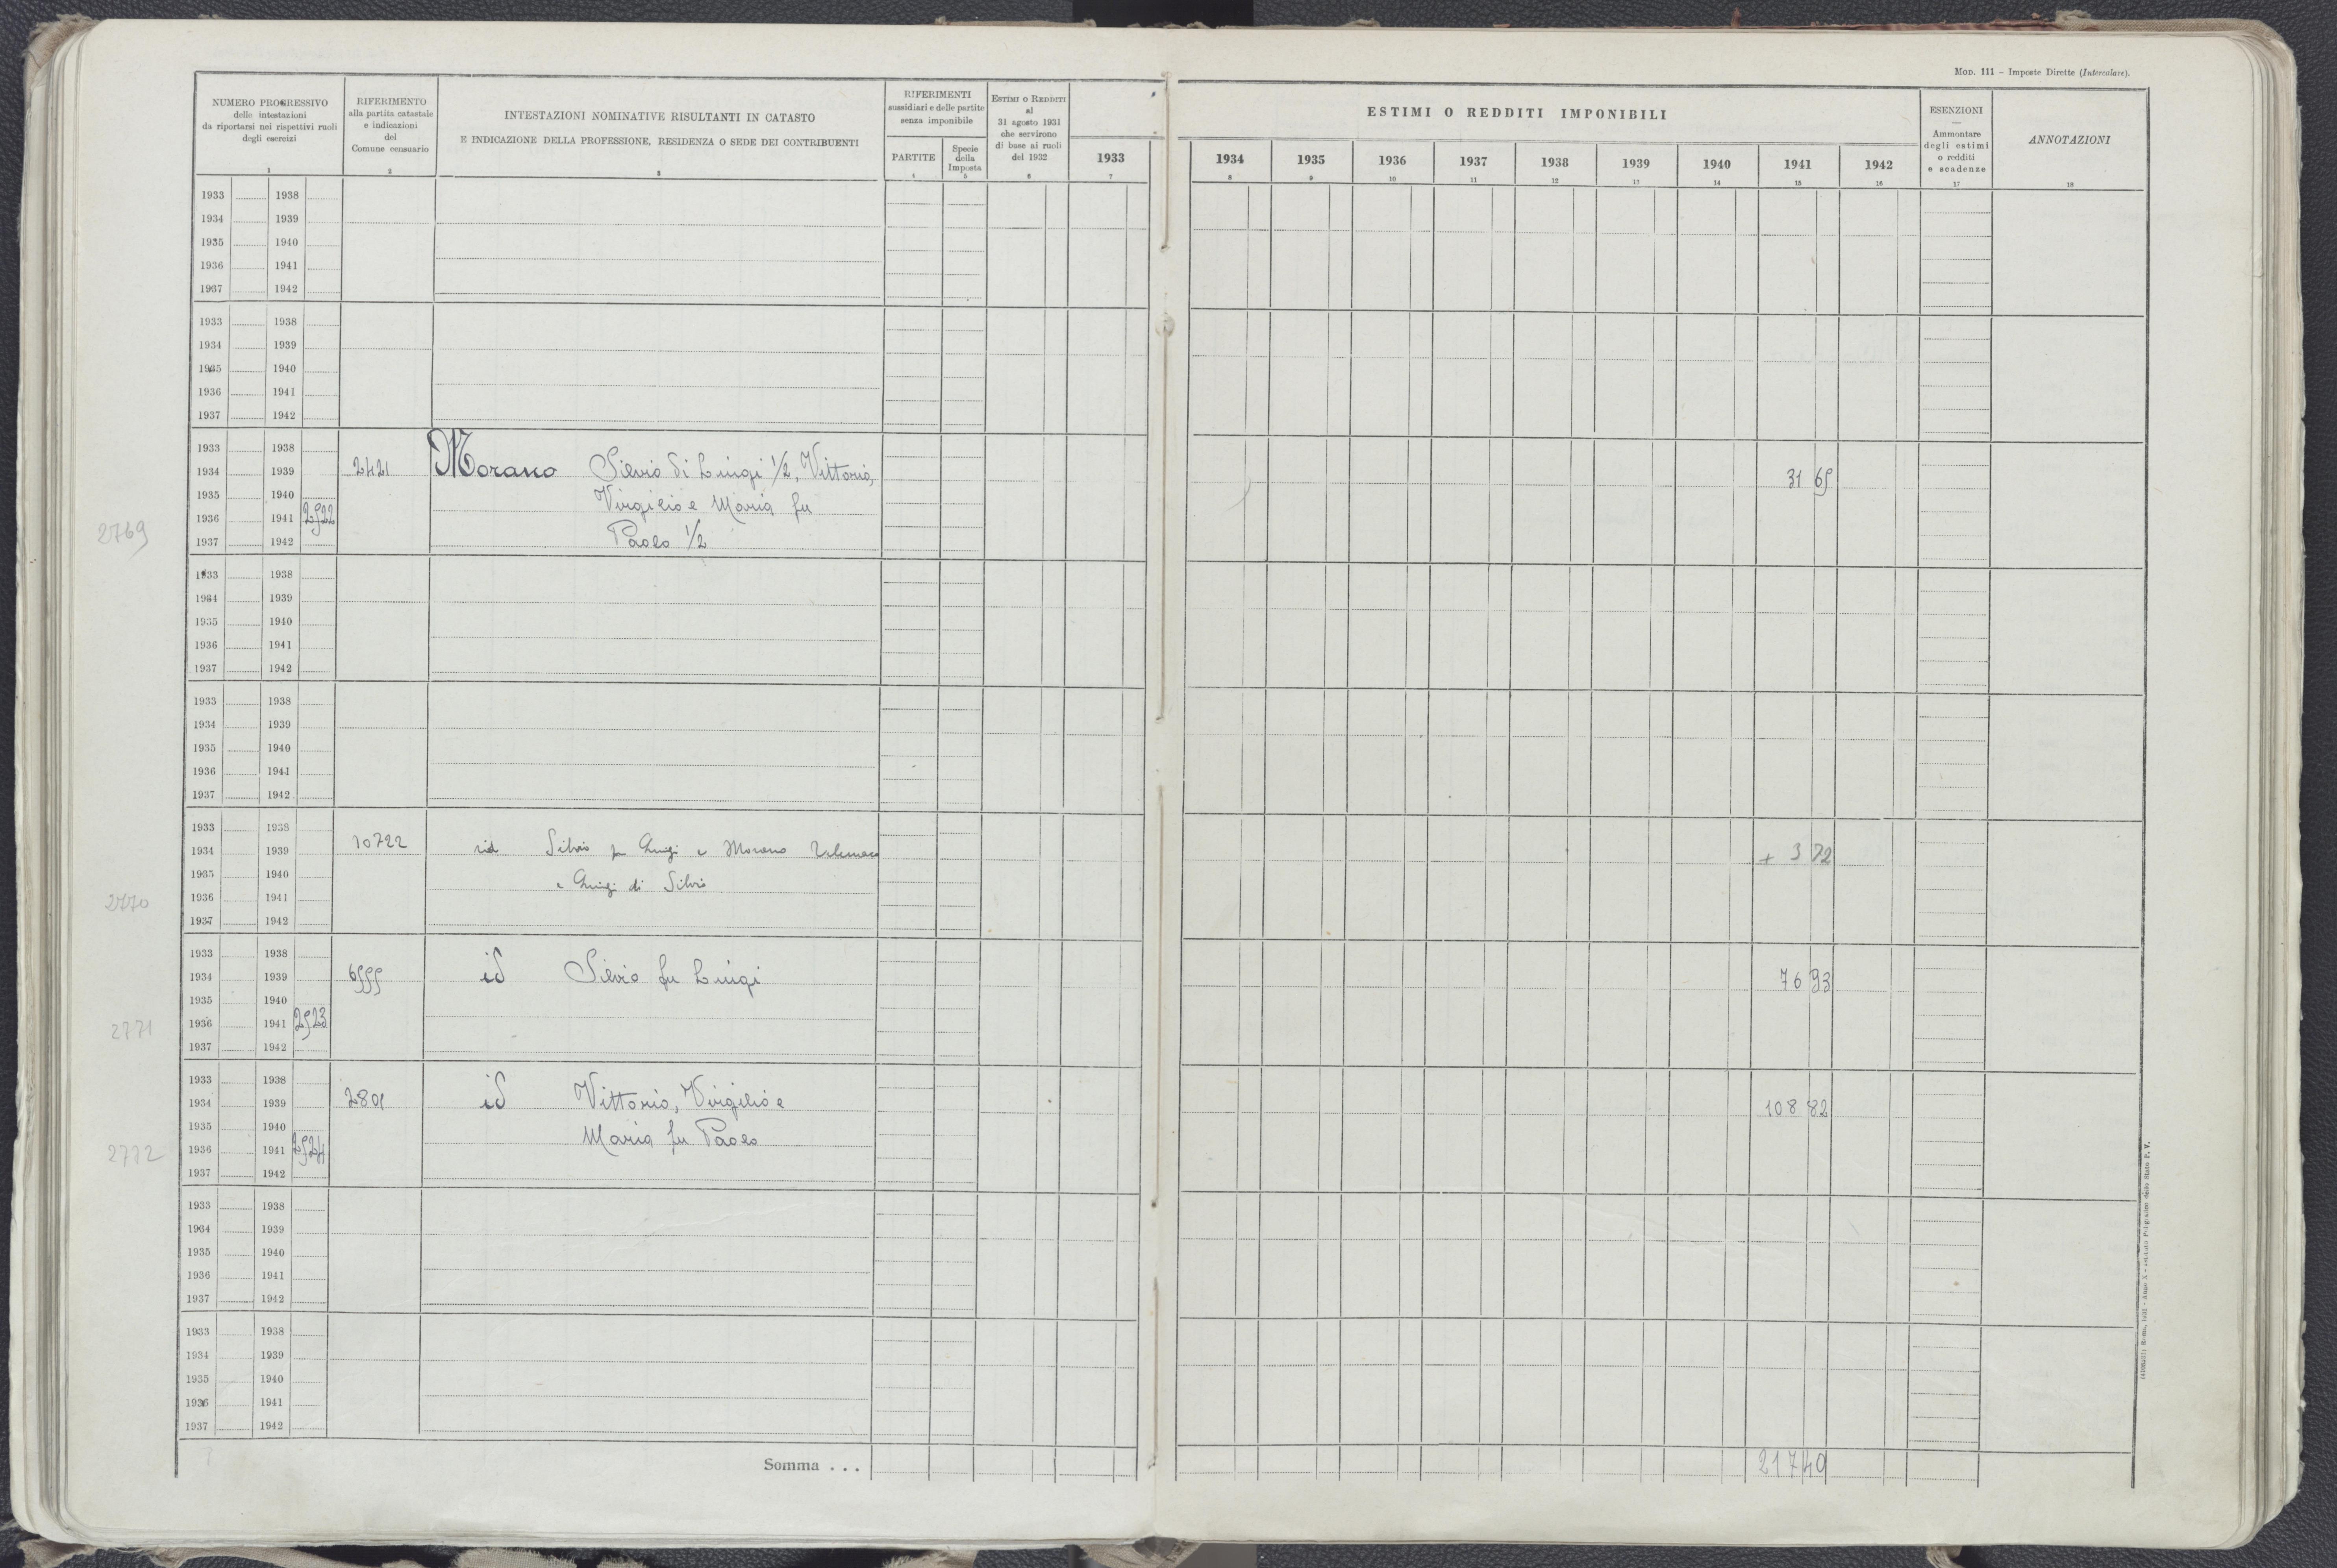 MOD. 111 – Imposte Dirette (Intercalare).
NUMERO PROGRESSIVO
delle intestazioni
da riportarsi nei rispettivi ruoli
degli esercizi
1
RIFERIMENTO
alla partita catastale
e indicazioni
del
Comune censuario
2
INTESTAZIONI NOMINATIVE RISULTANTI IN CATASTO
E INDICAZIONE DELLA PROFESSIONE, RESIDENZA O SEDE DEI CONTRIBUENTI
3
RIFERIMENTI
sussidiari e delle partite
senza imponibile
PARTITE
4
Specie
della
Imposta
5
ESTIMI O REDDITI
al
31 agosto 1931
che servirono
di base ai ruoli
del 1932
6
ESTIMI O REDDITI IMPONIBILI
1933 1934 1935 1936 1937 1938 1939 1940 1941 1942
7 8 9 10 11 12 13 14 15 16
ESENZIONI
—
Ammontare
degli estimi
o redditi
e scadenze
17
ANNOTAZIONI
18
1933 1938
1934 1939
1935 1940
1936 1941
1937 1942
1933 1938
1934 1939
1935 1940
1936 1941
1937 1942
1933 1938
1934 1939 2421 Morano Silvio di Luigi 1/2, Vittorio, 31 65
1935 1940 Virgilio e Maria fu
1936 1941 2522
2769 1937 1942 Paolo 1/2
1933 1938
1934 1939
1935 1940
1936 1941
1937 1942
1933 1938
1934 1939
1935 1940
1936 1941
1937 1942
1933 1938
1934 1939 10722 id Silvio fu Luigi e Morano Telemaco + 3 72
1935 1940 e Luigi di Silvio
2770 1936 1941
1937 1942
1933 1938
1934 1939 6555 id Silvio fu Luigi 76 93
1935 1940
2771 1936 1941 2523
1937 1942
1933 1938
1934 1939 2801 id Vittorio, Virgilio e 108 82
1935 1940 Maria fu Paolo
2772 1936 1941 2524
1937 1942
1933 1938
1934 1939
1935 1940
1936 1941
1937 1942
1933 1938
1934 1939
1935 1940
1936 1941
1937 1942
Somma . . . 217 40